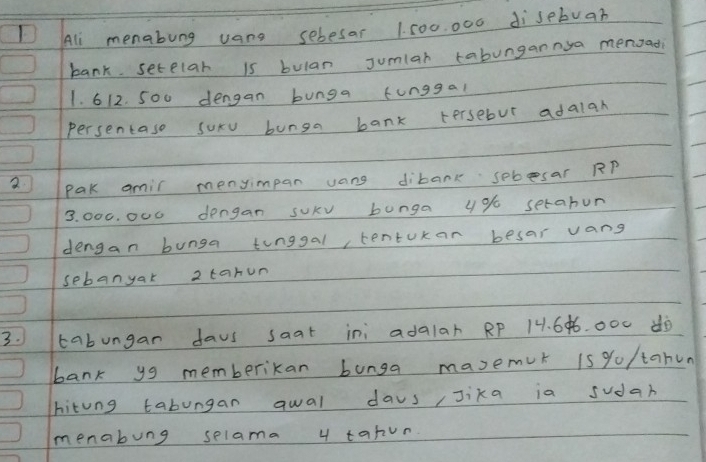 1 Ali menabung uang sebesar 1.500.000 disebuah
bank. setelah 15 bulan Jumlah tabungannya menjadi
1.612.500 dengan bunga tunggal
Persentase suku bunga bank tersebut adalah
2. Pak amir menyimpan uang dibank sebesar RP
3.000.000 dengan suku bunga 4% setahun
dengan bunga tunggal, tentukan besar uang
sebanyak 2 tahun
3. tabungan daus saat ini adalah RP 14.6 .000 di
bank yg memberikan bunga majemuk 15%/tahun
hitung tabungan awal daus, Jika ia sudah
menabung selama 4 tahun.